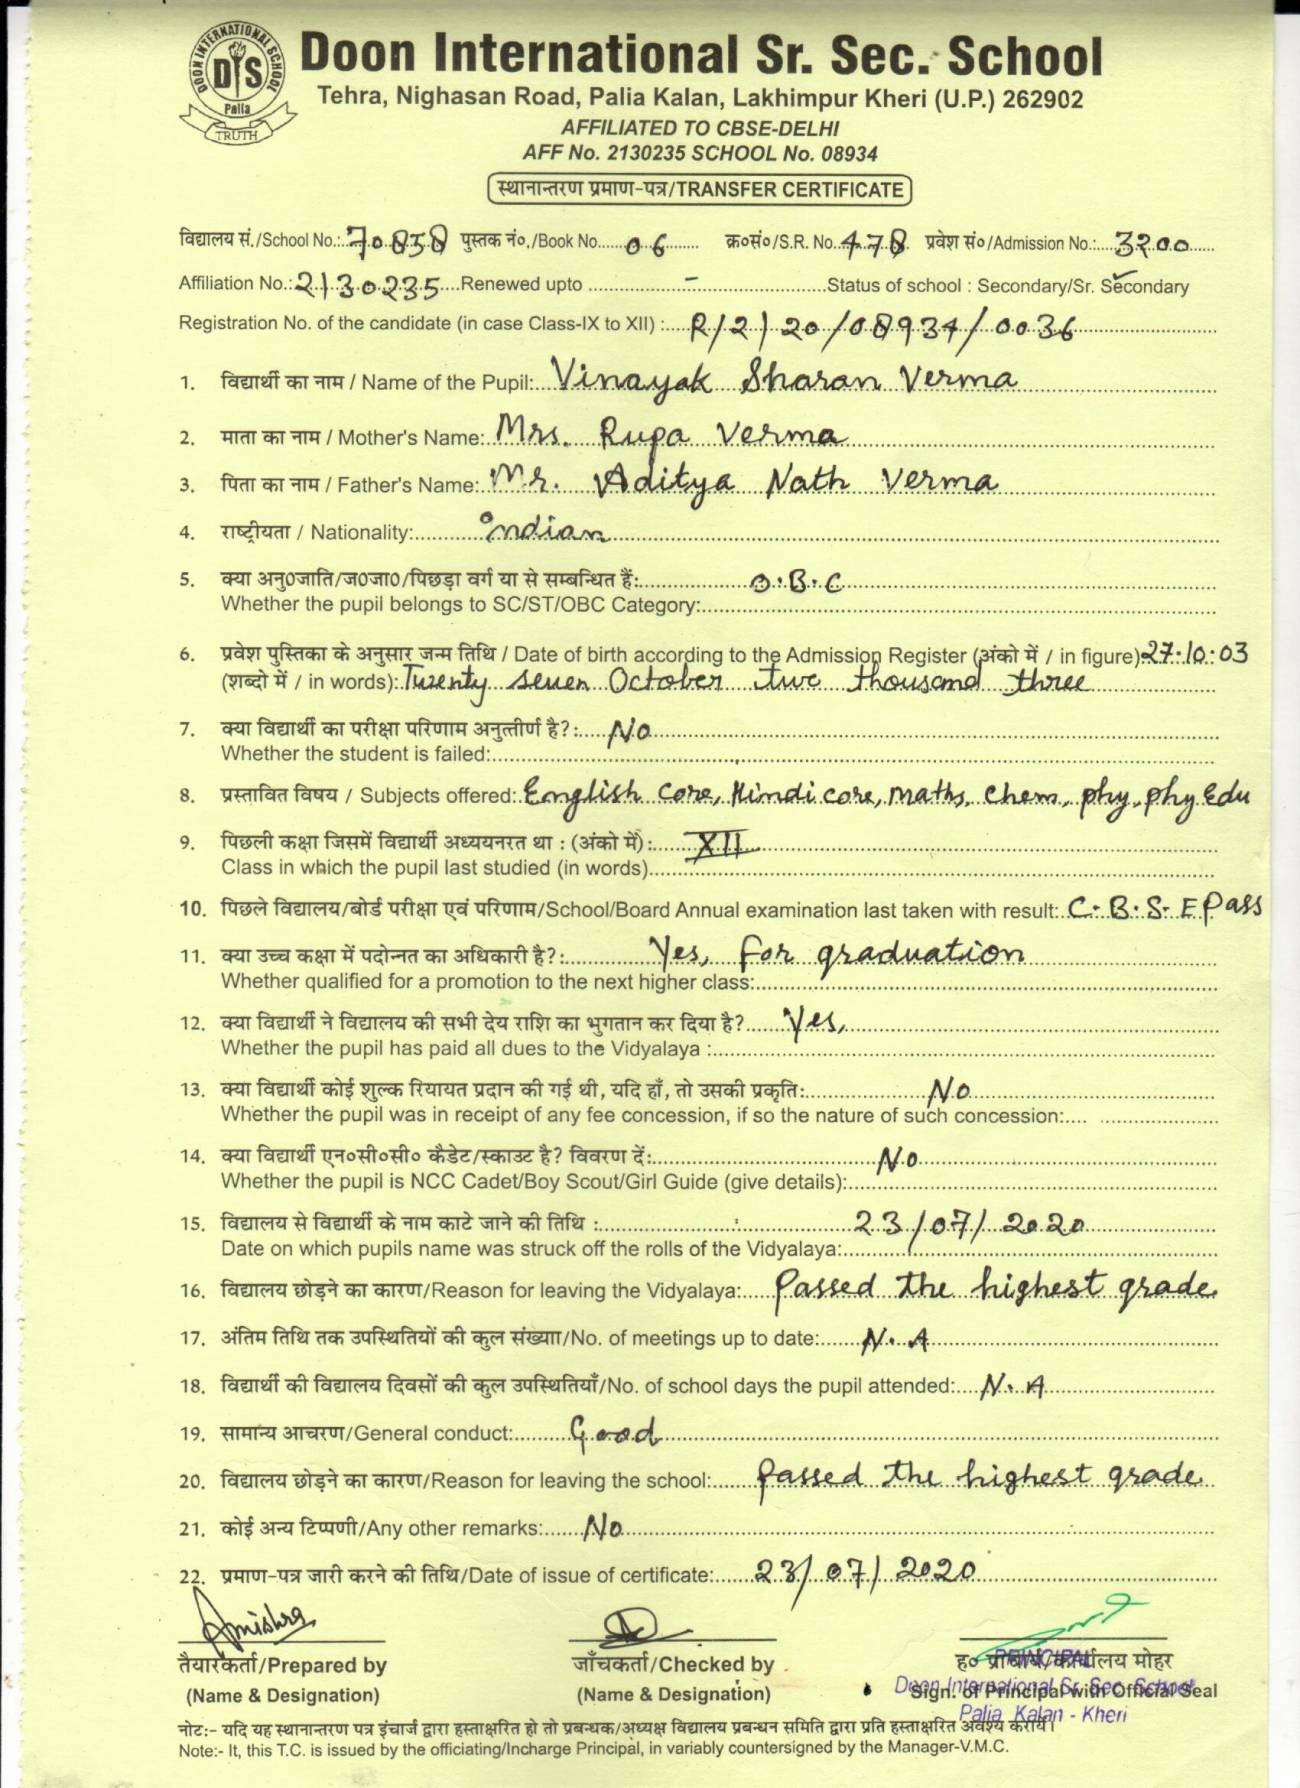 DOON INTERNATIONAL SCHOOL
DIS
Palia
TRUTH
Doon International Sr. Sec. School
Tehra, Nighasan Road, Palia Kalan, Lakhimpur Kheri (U.P.) 262902
AFFILIATED TO CBSE-DELHI
AFF No. 2130235 SCHOOL No. 08934
स्थानान्तरण प्रमाण-पत्र/TRANSFER CERTIFICATE
विद्यालय सं./School No.: 70858 पुस्तक नं०./Book No. 06 क्र०सं०/S.R. No. 478 प्रवेश सं०/Admission No.: 3200
Affiliation No.: 2130235 Renewed upto - Status of school : Secondary/Sr. Secondary
Registration No. of the candidate (in case Class-IX to XII) : R/2/20/08934/0036
1. विद्यार्थी का नाम / Name of the Pupil: Vinayak Sharan Verma
2. माता का नाम / Mother's Name: Mrs. Rupa Verma
3. पिता का नाम / Father's Name: Mr. Aditya Nath Verma
4. राष्ट्रीयता / Nationality: indian
5. क्या अनु०जाति/ज०जा०/पिछड़ा वर्ग या से सम्बन्धित हैं: O.B.C
Whether the pupil belongs to SC/ST/OBC Category:
6. प्रवेश पुस्तिका के अनुसार जन्म तिथि / Date of birth according to the Admission Register (अंको में / in figure) 27.10.03
(शब्दो में / in words): Twenty seven October two thousand three
7. क्या विद्यार्थी का परीक्षा परिणाम अनुत्तीर्ण है?: No
Whether the student is failed:
8. प्रस्तावित विषय / Subjects offered: English core, Hindi core, Maths, Chem, phy, phy Edu
9. पिछली कक्षा जिसमें विद्यार्थी अध्ययनरत था : (अंको में): XII
Class in which the pupil last studied (in words)
10. पिछले विद्यालय/बोर्ड परीक्षा एवं परिणाम/School/Board Annual examination last taken with result: C.B.S.E Pass
11. क्या उच्च कक्षा में पदोन्नत का अधिकारी है?: Yes, for graduation
Whether qualified for a promotion to the next higher class:
12. क्या विद्यार्थी ने विद्यालय की सभी देय राशि का भुगतान कर दिया है? Yes,
Whether the pupil has paid all dues to the Vidyalaya :
13. क्या विद्यार्थी कोई शुल्क रियायत प्रदान की गई थी, यदि हाँ, तो उसकी प्रकृति: No
Whether the pupil was in receipt of any fee concession, if so the nature of such concession:
14. क्या विद्यार्थी एन०सी०सी० कैडेट/स्काउट है? विवरण दें: No
Whether the pupil is NCC Cadet/Boy Scout/Girl Guide (give details):
15. विद्यालय से विद्यार्थी के नाम काटे जाने की तिथि : 23/07/2020
Date on which pupils name was struck off the rolls of the Vidyalaya:
16. विद्यालय छोड़ने का कारण/Reason for leaving the Vidyalaya: Passed the highest grade
17. अंतिम तिथि तक उपस्थितियों की कुल संख्याा/No. of meetings up to date: N.A
18. विद्यार्थी की विद्यालय दिवसों की कुल उपस्थितियाँ/No. of school days the pupil attended: N.A
19. सामान्य आचरण/General conduct: Good
20. विद्यालय छोड़ने का कारण/Reason for leaving the school: Passed the highest grade
21. कोई अन्य टिप्पणी/Any other remarks: No
22. प्रमाण-पत्र जारी करने की तिथि/Date of issue of certificate: 23/07/2020
Amishra
तैयारकर्ता/Prepared by जाँचकर्ता/Checked by ह० प्राचार्य/कार्यालय मोहर
PRINCIPAL
(Name & Designation) (Name & Designation) Sign. of Principal with Official Seal
Doon International Sr. Sec. School
Palia Kalan - Kheri
नोटः- यदि यह स्थानान्तरण पत्र इंचार्ज द्वारा हस्ताक्षरित हो तो प्रबन्धक/अध्यक्ष विद्यालय प्रबन्धन समिति द्वारा प्रति हस्ताक्षरित अवश्य करायें।
Note:- It, this T.C. is issued by the officiating/Incharge Principal, in variably countersigned by the Manager-V.M.C.